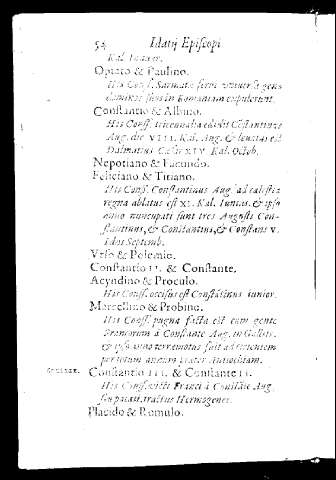 54 Idatij Episcopi
Kal. Ianuar.
Optato & Paulino.
His Conss. Sarmatæ servi universa gens
dominos suos in Romaniam expulerunt.
Constantio & Albino.
His Conss. tricennalia edidit Constantinus
Aug. die VIII. Kal. Aug. & levatus est
Dalmatius Cæsar XIV. Kal. Octob.
Nepotiano & Facundo.
Feliciano & Titiano.
His Conss. Constantinus Aug. ad cælestia
regna ablatus est XI. Kal. Iunias. & ipso
anno nuncupati sunt tres Augusti Con-
stantinus, & Constantius, & Constans V.
Idus Septemb.
Vrso & Polemio.
Constantio II. & Constante.
Acyndino & Proculo.
His Conss. occisus est Constantinus iunior.
Marcellino & Probino.
His Conss. pugna facta est cum gente
Francorum à Constante Aug. in Gallijs.
& ipso anno terremotus fuit ad Orientem
per totum annum præter Antiochiam.
Constantio III. & Constante II.
His Conss. victi Franci à Constante Aug.
seu pacati, tractus Hermogenes.
Placido & Romulo.